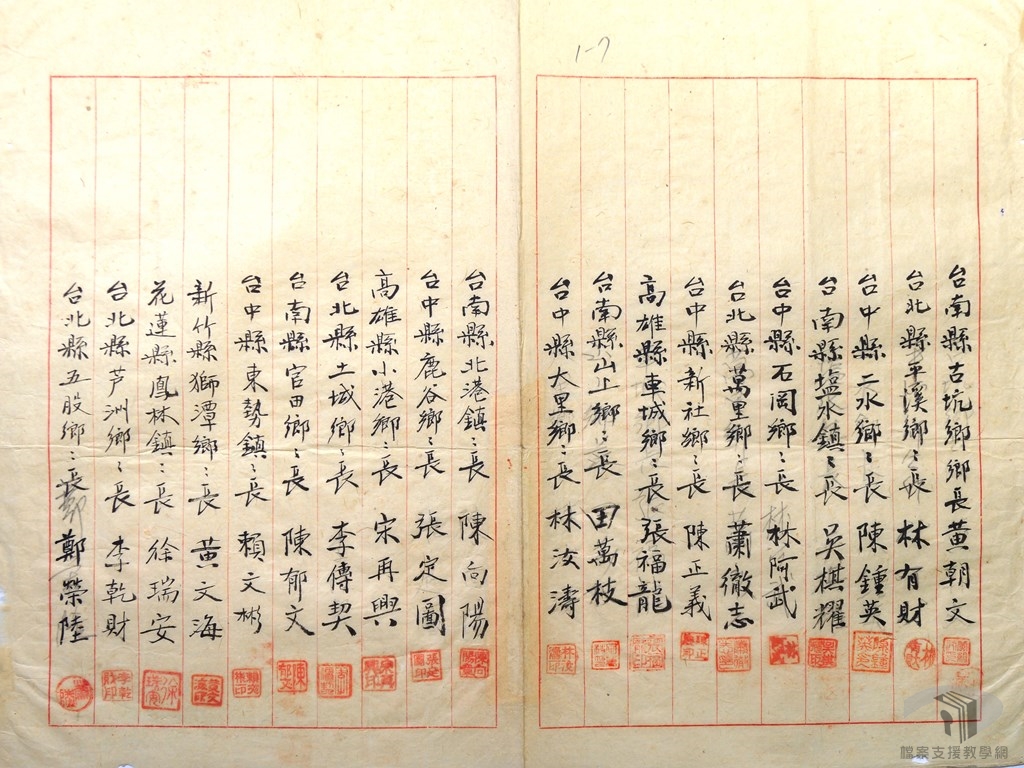 1-7
台南縣古坑鄉鄉長黄朝文
台北縣平溪鄉〻長林有財
台中縣二水鄉〻長陳鍾英
台南縣塩水鎮〻長吳棋耀
台中縣石岡鄉〻長林阿武
台北縣萬里鄉〻長蕭徹志
台中縣新社鄉〻長陳正義
高雄縣車城鄉〻長張福龍
台南縣山上鄉〻長田萬枝
台中縣大里鄉〻長林汝濤
台南縣北港鎮〻長陳向陽
台中縣鹿谷鄉〻長張定圖
高雄縣小港鄉〻長宋再興
台北縣土城鄉〻長李傳契
台南縣官田鄉〻長陳郁文
台中縣東勢鎮〻長賴文彬
新竹縣獅潭鄉〻長黄文海
花蓮縣鳳林鎮〻長徐瑞安
台北縣芦洲鄉〻長李乾財
台北縣五股鄉〻長鄭榮陸
檔案支援教學網